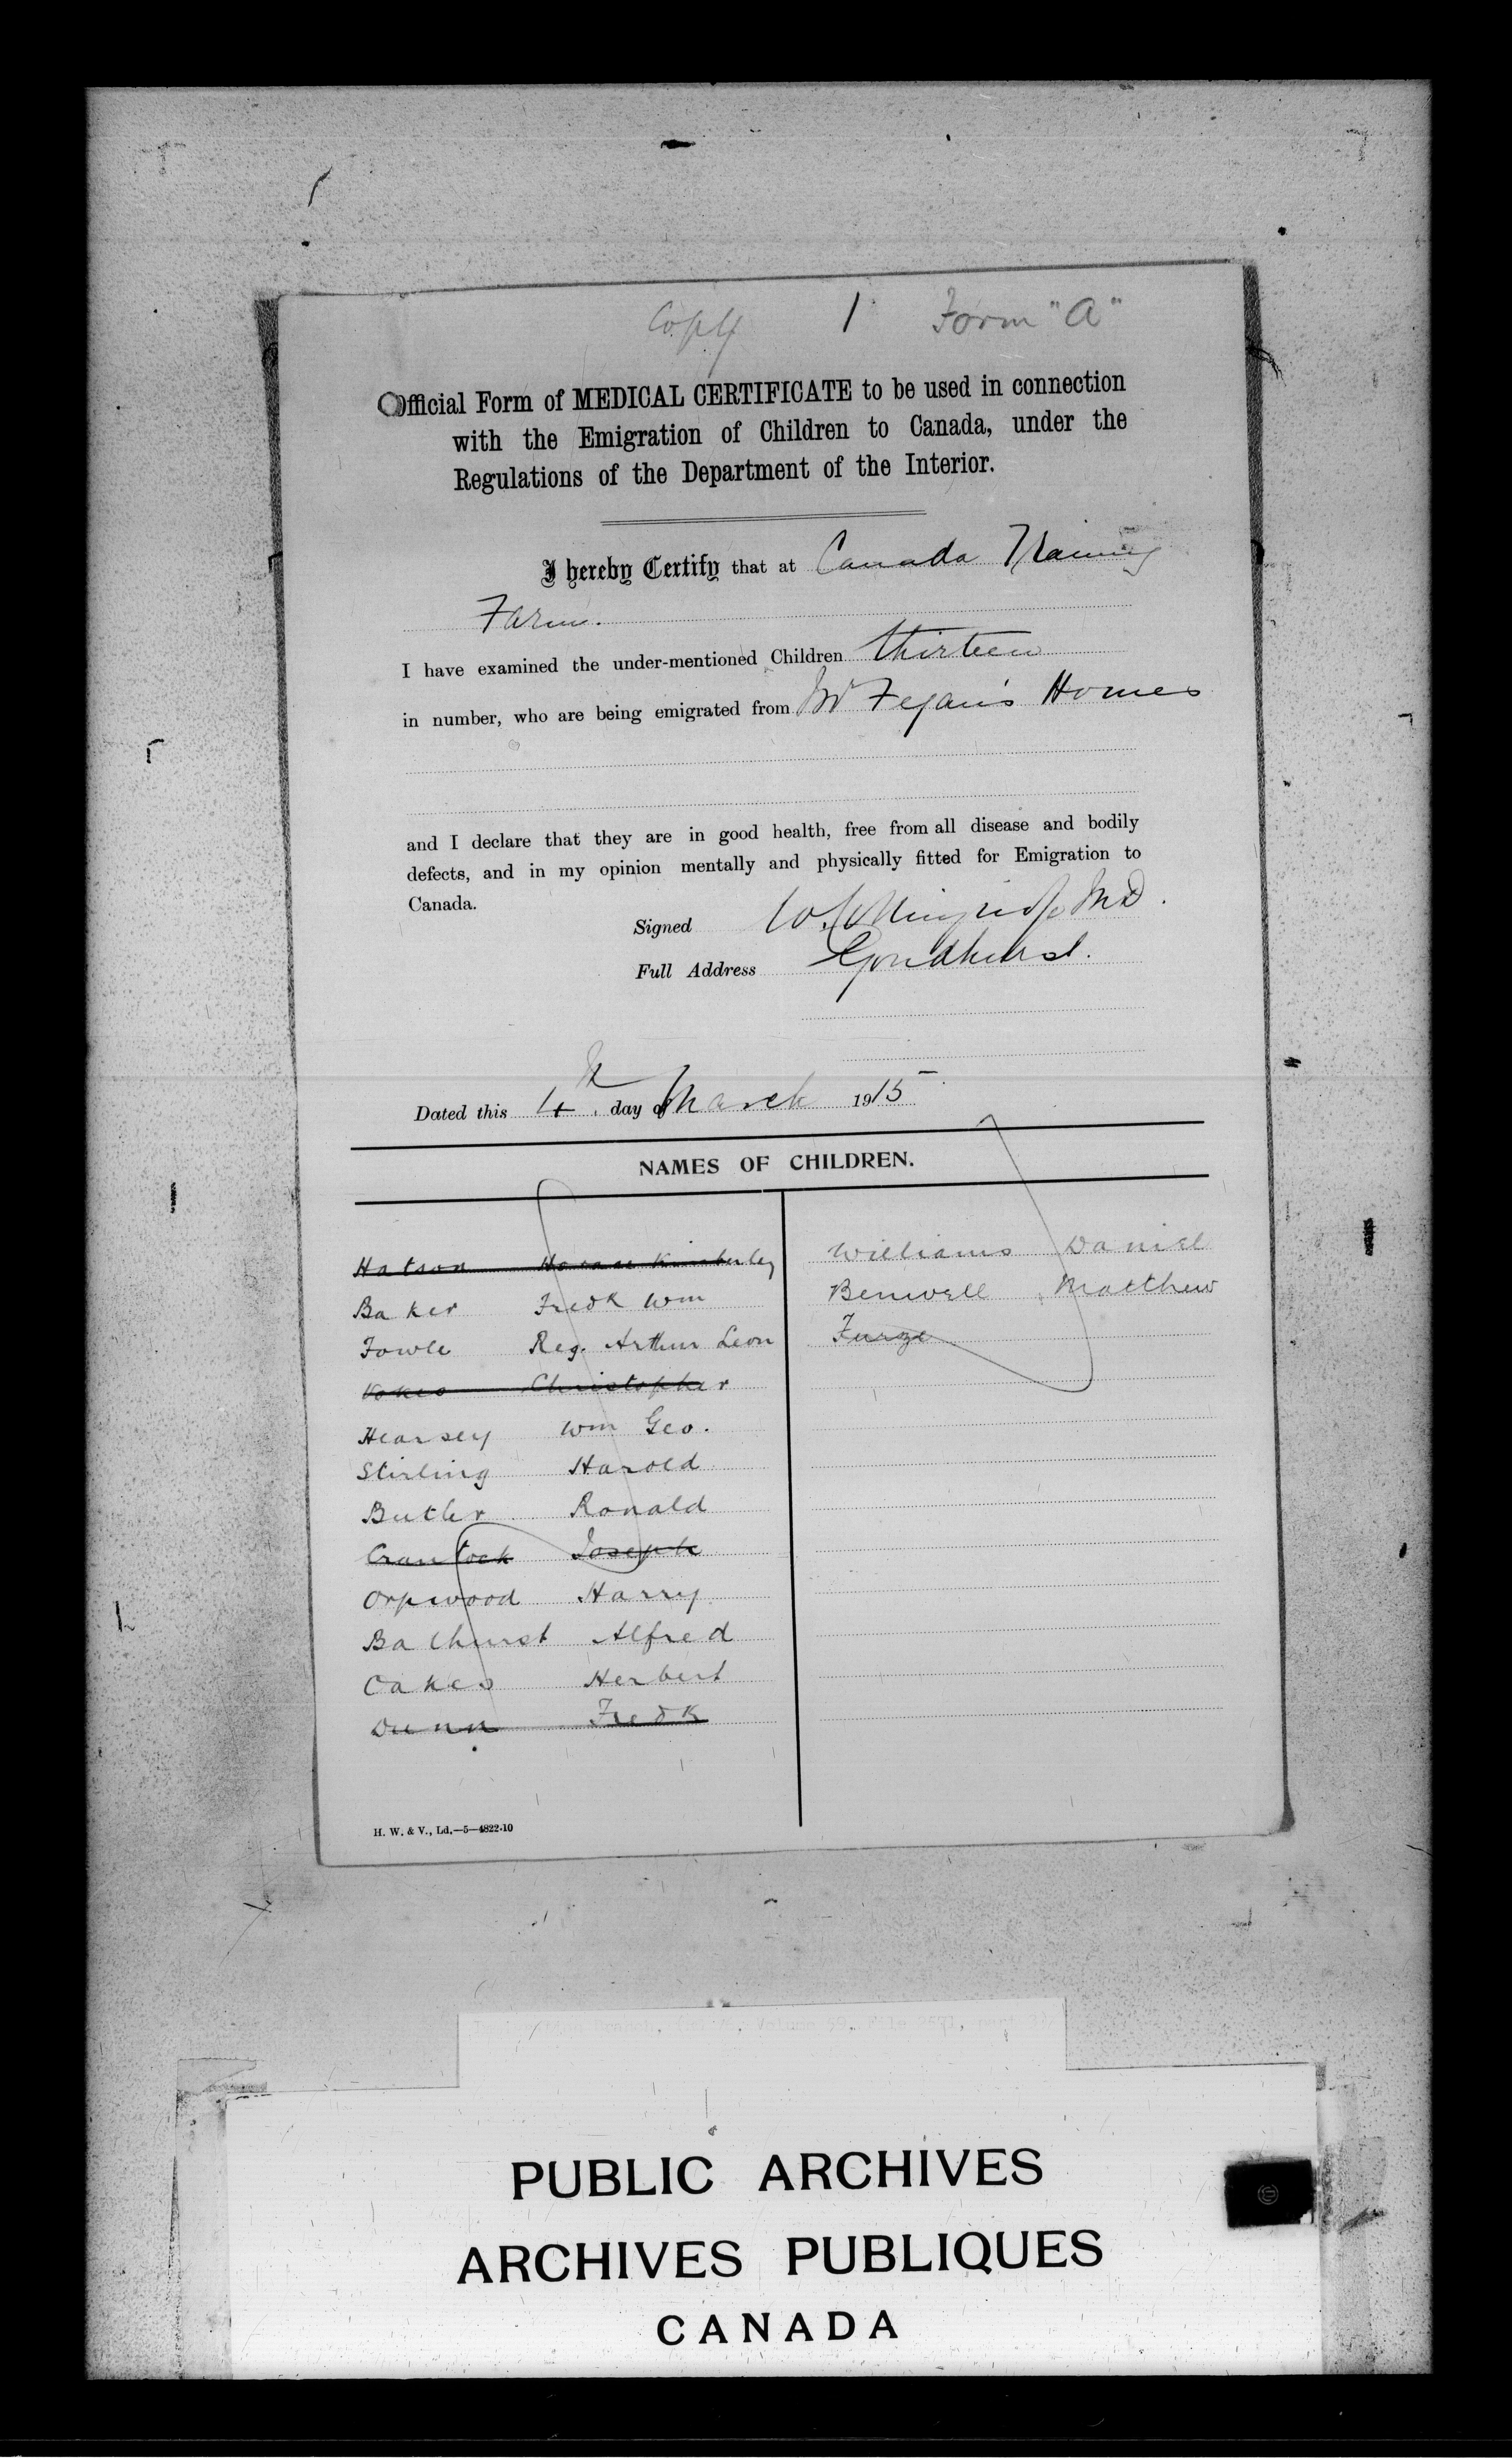 Copy 1 Form "A"
Official Form of MEDICAL CERTIFICATE to be used in connection
with the Emigration of Children to Canada, under the
Regulations of the Department of the Interior.
I hereby Certify that at Canada Training
Farm.
I have examined the under-mentioned Children thirteen
in number, who are being emigrated from Mr Fegan's Homes
and I declare that they are in good health, free from all disease and bodily
defects, and in my opinion mentally and physically fitted for Emigration to
Canada.
Signed MD.
Full Address Goudhurst.
Dated this 4th day of March 1915
NAMES OF CHILDREN.
Hatson Horace Kimberley
Baker Fredk Wm
Fowle Reg. Arthur Leon
Christopher
Hearsey Wm Geo.
Stirling Harold
Butler Ronald
Joseph
Orpwood Harry
Bathurst Alfred
Oakes Herbert
Dunn Fredk
Williams Daniel
Benwell Matthew
Furze
H. W. & V., Ld.—5—4822-10
PUBLIC ARCHIVES
ARCHIVES PUBLIQUES
CANADA